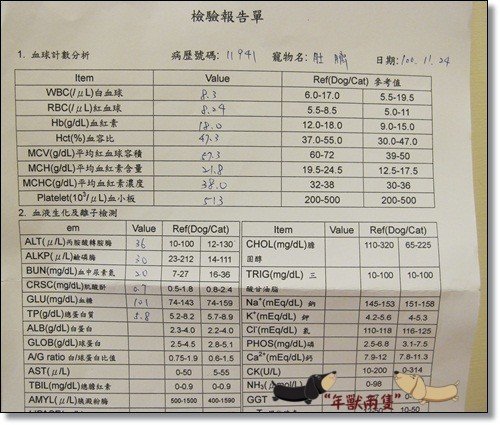 檢驗報告單
1. 血球計數分析 病歷號碼: 11941 寵物名: 肚臍 日期: 100.11.24
Item Value Ref(Dog/Cat) 參考值
WBC(/μL)白血球 8.3 6.0-17.0 5.5-19.5
RBC(/μL)紅血球 8.24 5.5-8.5 5.0-11
Hb(g/dL)血紅素 18.0 12.0-18.0 9.0-15.0
Hct(%)血容比 47.3 37.0-55.0 30.0-47.0
MCV(g/dL)平均紅血球容積 57.3 60-72 39-50
MCH(g/dL)平均血紅素含量 21.8 19.5-24.5 12.5-17.5
MCHC(g/dL)平均血紅素濃度 38.0 32-38 30-36
Platelet(10³/μL)血小板 513 200-500 200-500
2. 血液生化及離子檢測
em Value Ref(Dog/Cat) Item Value Ref(Dog/Cat)
ALT(μ/L)丙胺酸轉胺酶 36 10-100 12-130 CHOL(mg/dL)膽固醇 110-320 65-225
ALKP(μ/L)鹼磷酶 30 23-212 14-111
BUN(mg/dL)血中尿素氮 20 7-27 16-36 TRIG(mg/dL)三酸甘油脂 10-100 10-100
CRSC(mg/dL)肌酸酐 0.7 0.5-1.8 0.8-2.4
GLU(mg/dL)血糖 101 74-143 74-159 Na⁺(mEq/dL) 鈉 145-153 151-158
TP(g/dL)總蛋白質 5.8 5.2-8.2 5.7-8.9 K⁺(mEq/dL) 鉀 4.2-5.6 4-5.3
ALB(g/dL)白蛋白 2.3-4.0 2.2-4.0 Cl⁻(mEq/dL) 氯 110-118 116-125
GLOB(g/dL)球蛋白 2.5-4.5 2.8-5.1 PHOS(mg/dL)磷 2.5-6.8 3.1-7.5
A/G ratio 白/球蛋白比值 0.75-1.9 0.6-1.5 Ca²⁺(mEq/dL)鈣 7.9-12 7.8-11.3
AST(μ/L) 0-50 5-55 CK(U/L) 10-200 0-314
TBIL(mg/dL)總膽紅素 0-0.9 0-0.9 NH₃(μmol/L) 0-98
AMYL(μ/L)胰澱粉酶 500-1500 400-1590 GGT
"年獸兩隻"